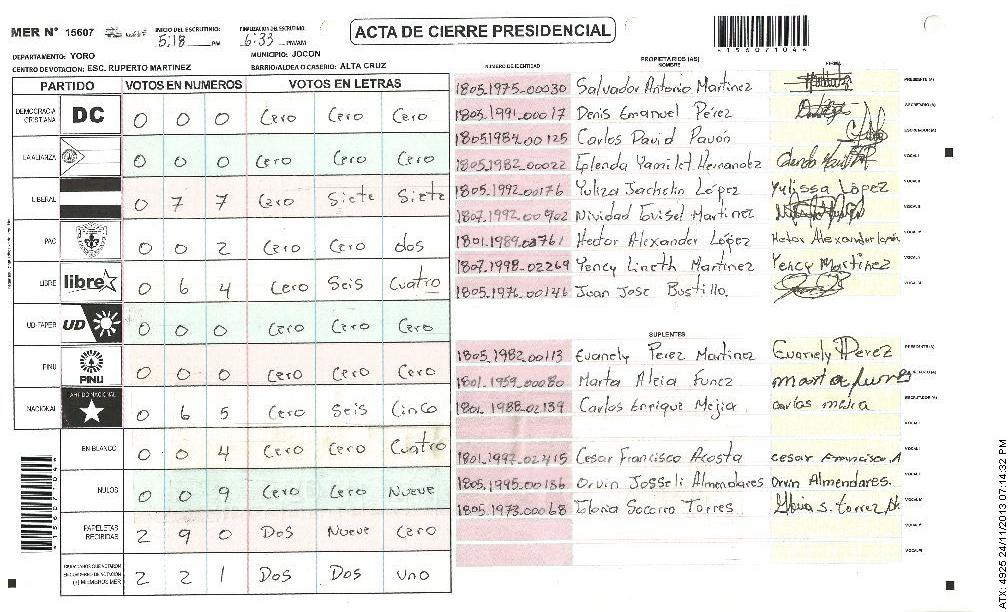 MER N° 15607
INICIO DEL ESCRUTINIO: 5:18 PM
FINALIZACION DEL ESCRUTINIO: 6:33 PM/AM
ACTA DE CIERRE PRESIDENCIAL
156071044
DEPARTAMENTO: YORO
MUNICIPIO: JOCON
CENTRO DE VOTACION: ESC. RUPERTO MARTINEZ
BARRIO/ALDEA O CASERIO: ALTA CRUZ
PARTIDO VOTOS EN NUMEROS VOTOS EN LETRAS
DEMOCRACIA CRISTIANA DC 0 0 0 Cero Cero Cero
LA ALIANZA 0 0 0 Cero Cero Cero
LIBERAL 0 7 7 Cero Siete Siete
PAC 0 0 2 Cero Cero dos
LIBRE libre 0 6 4 Cero Seis Cuatro
UD-FAPER UD 0 0 0 Cero Cero Cero
PINU PINU 0 0 0 Cero Cero Cero
NACIONAL 0 6 5 Cero Seis Cinco
EN BLANCO 0 0 4 Cero Cero Cuatro
NULOS 0 0 9 Cero Cero Nueve
PAPELETAS RECIBIDAS 2 9 0 Dos Nueve Cero
(+) MIEMBROS MER 2 2 1 Dos Dos uno
PROPIETARIOS (AS)
NUMERO DE IDENTIDAD NOMBRE FIRMA
1805.1975-00030 Salvador Antonio Martinez PRESIDENTE (A)
1805.1991-00017 Denis Emanuel Pérez SECRETARIO (A)
1805.1984-00125 Carlos David Pavón ESCRUTADOR (A)
1805.1982-00022 Glenda Yamilet Hernandez VOCAL I
1805-1992-00176 Yuliza Jachelin López Yulissa López
1807.1992-00902 Nividad Euisel Martinez
1801.1989-03761 Hector Alexander López Hector Alexander
1807-1998-02269 Yency Lineth Martinez Yency Martinez
1805.1976-00146 Juan Jose Bustillo.
SUPLENTES
1805.1982-00113 Evanely Perez Martinez Evanely Perez PRESIDENTE (A)
1801.1959-00080 Marta Alcia Funez marta funes SECRETARIO (A)
1801-1988-02139 Carlos Enrique Mejia. carlos mejia ESCRUTADOR (A)
1801.1997-02415 Cesar Francisco Acosta cesar Francisco. A
1805.1995-00136 Orvin Josseli Almendares Orvin Almendares.
1805.1973-00068 Gloria Socorro Torres. Gloria S. torrez
ATX: 4925 24/11/2013 07:14:32 PM